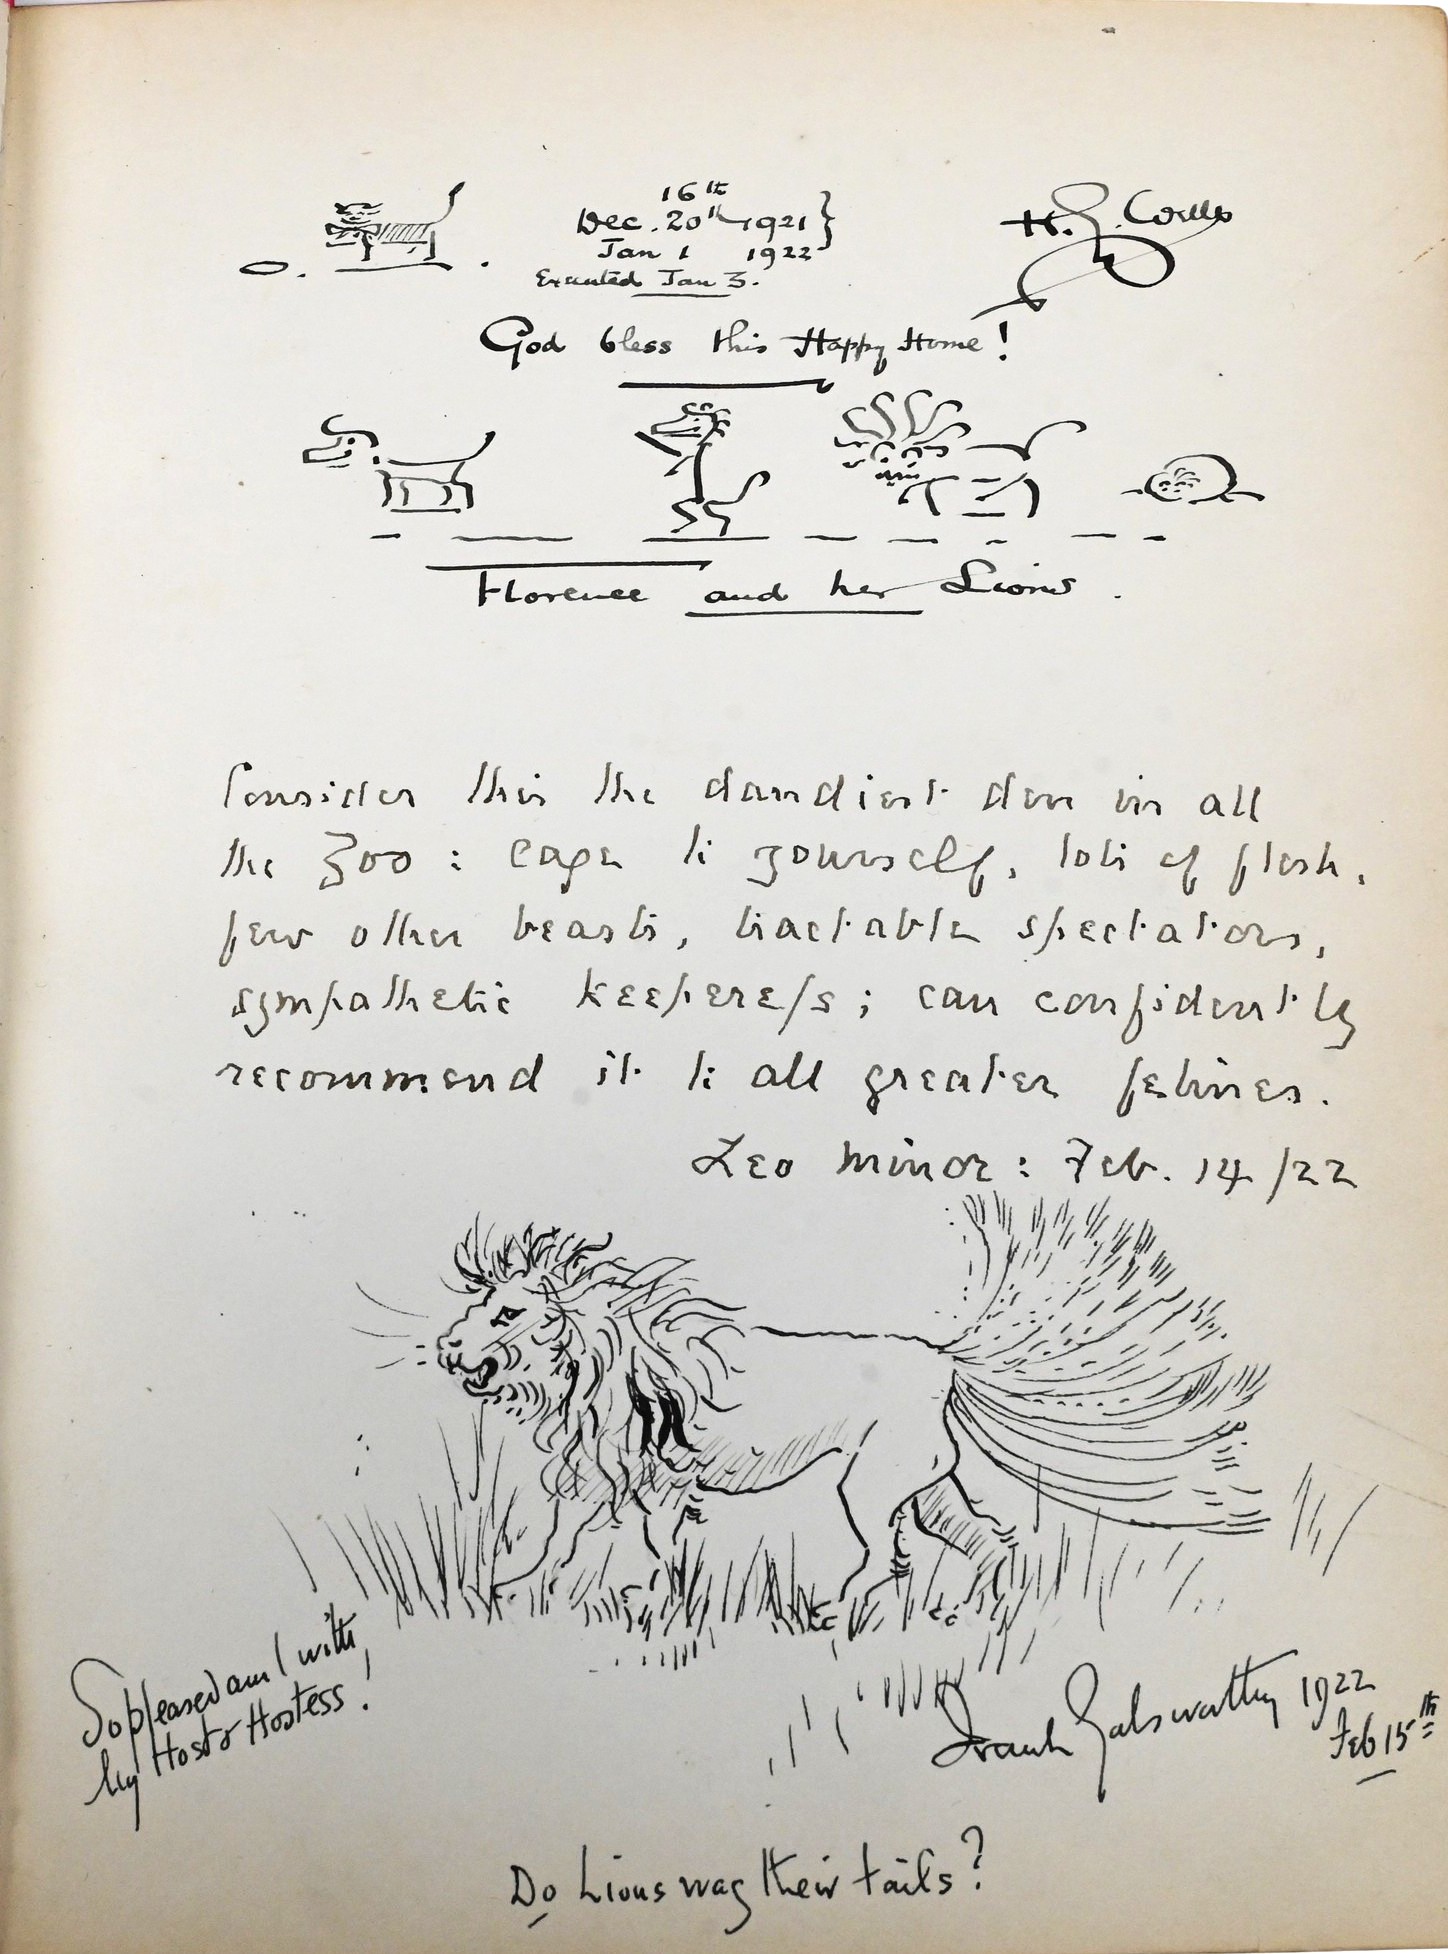 16th
Dec. 20th 1921 }
Jan 1 1922
Executed Jan 3.
H. J.
God bless this Happy Home!
Florence and her Lions.
Consider this the dandiest den in all
the Zoo: cage to yourself, lots of flesh,
few other beasts, tractable spectators,
sympathetic keepere/s; can confidently
recommend it to all greater felines.
Leo minor: Feb. 14/22
So pleased am I with
my Host & Hostess!
Frank Galsworthy 1922
Feb 15th
Do Lions wag their tails?